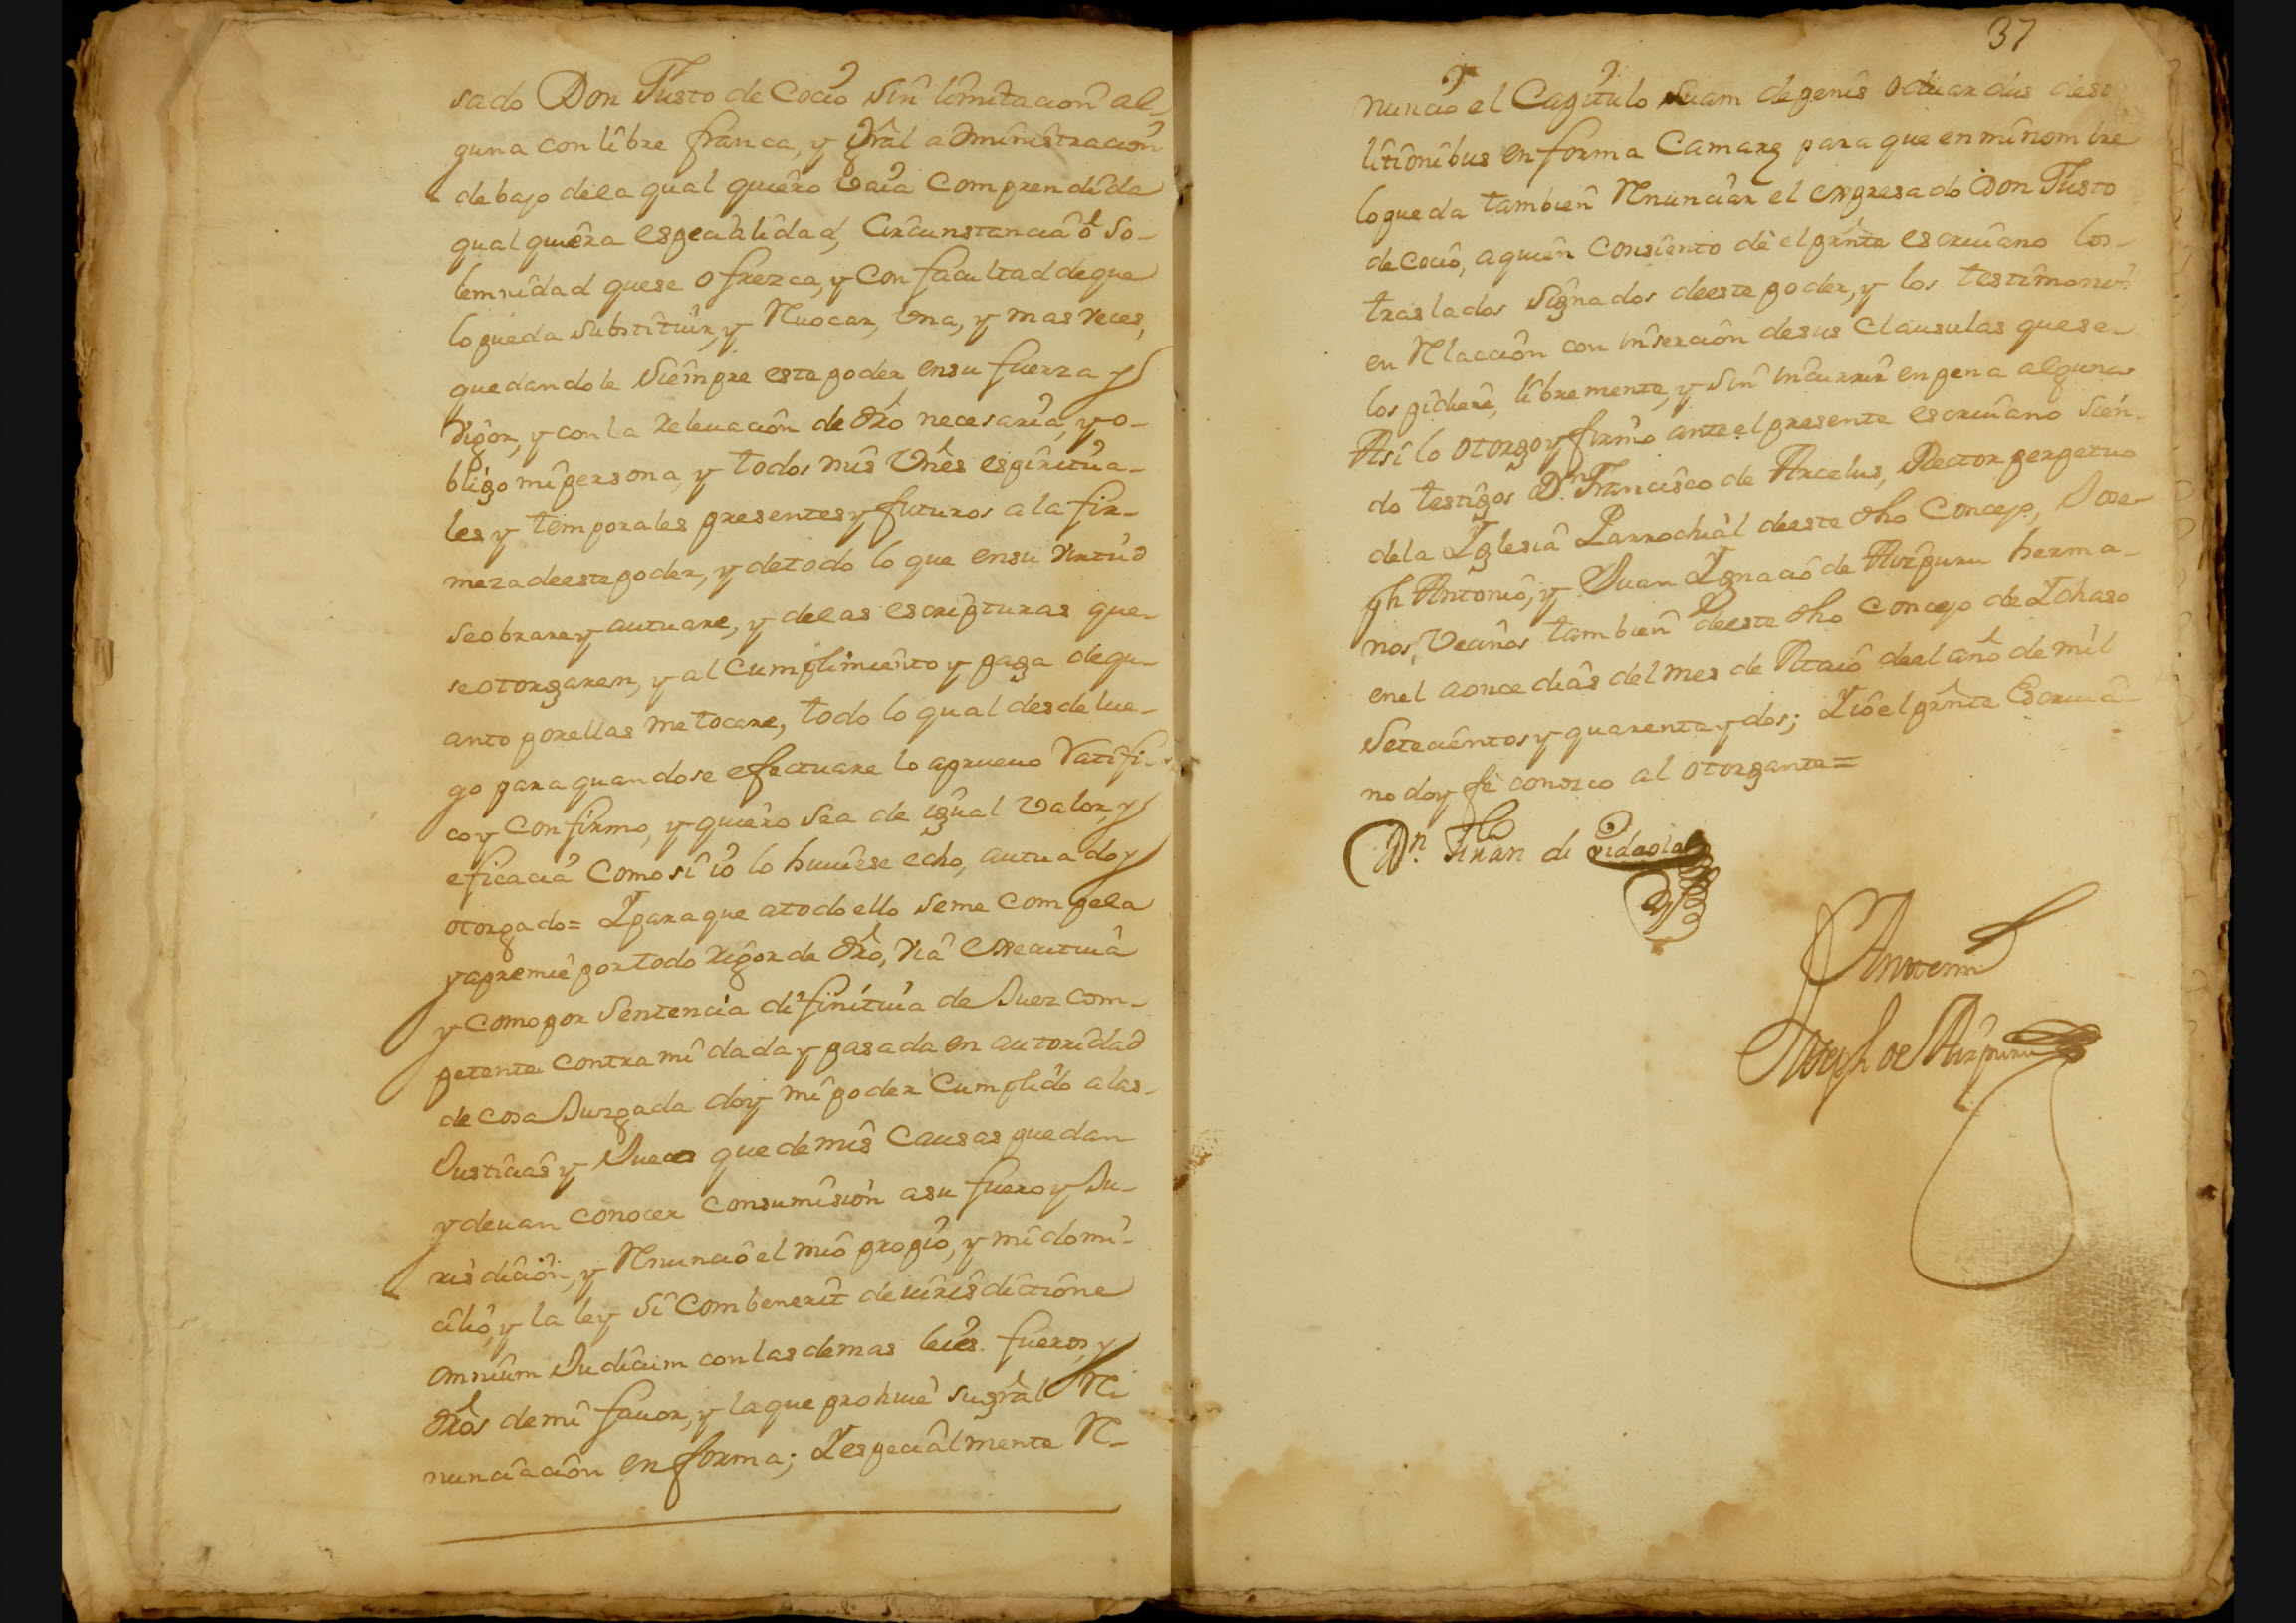 sado Don Justo de Cocio sin limitacion al-
guna con libre franca, y Gral administracion
debajo dela qual quiero vaia comprendida
qualquiera espeçialidad, Circunstancia ô So-
lemnidad quese ofrezca, y con facultad deque
lo pueda substituir, y Revocar, una, y mas veces,
quedandole siempre este poder ensu fuerza y
vigor, y con la relevacion de dro necesaria, y o-
bligo mi persona, y todos mis vnes espiritua-
les y temporales presentes y futuros a la fir-
meza deeste poder, y detodo lo que ensu virtud
seobrare y autuare, y delas escripturas que-
seotorgaren, y al cumplimiento y paga dequ-
anto porellas me tocare, todo lo qual desde lue-
go para quando se efectuare lo apruevo Ratifi-
co y confirmo, y quiero sea de igual valor, y
eficacia como si io lo huuiese echo, autuado y
otorgado= Y para que a todo ello se me compela
y apremie por todo rigor de dro, via executiua
y como por sentencia difinitiua de Juez com-
petente contra mi dada y pasada en autoridad
de cosa Juzgada doy mi poder cumplido a las-
Justicias y Jueces que de mis causas puedan
y deuan conocer consumision a su fuero y Ju-
risdicion, y Renuncio el mio propio, y mi domi-
cilio, y la ley si combenerit de iurisdictione
omnium Judicum con las demas leies. fueros, y
dros de mi fauor, y la que prohiue su gral Re
nunciacion en forma; Y especialmente Re-
37
nuncio el Capitulo suam de penis oduardus de so
lutionibus en forma Camarę para que en mi nombre
lo pueda tambien Renunciar el expresado Don Justo
de Cocio, a quien consiento dè el prnte escriuano los-
traslados signados deeste poder, y los testimonios
en Relaccion con insercion desus clausulas quese-
los pidiere, libremente, y sin incurrir en pena alguna
Asi lo otorgo y firmo ante el presente escriuano sien-
do testigos Dn. Francisco de Arcelus, Rector perpetuo
dela Yglesia Parrochial deeste dho Concejo, Jose-
ph Antonio, y Juan Ygnacio de Aizpuru herma-
nos, vecinos tambien deeste dho Concejo de Ychaso
en el a once dias del mes de Maio deel año de mil
setecientos y quarenta y dos; Y io el prnte Escriua-
no doy fè conozco al otorgante=
Antemi
Joseph de Aizpuru